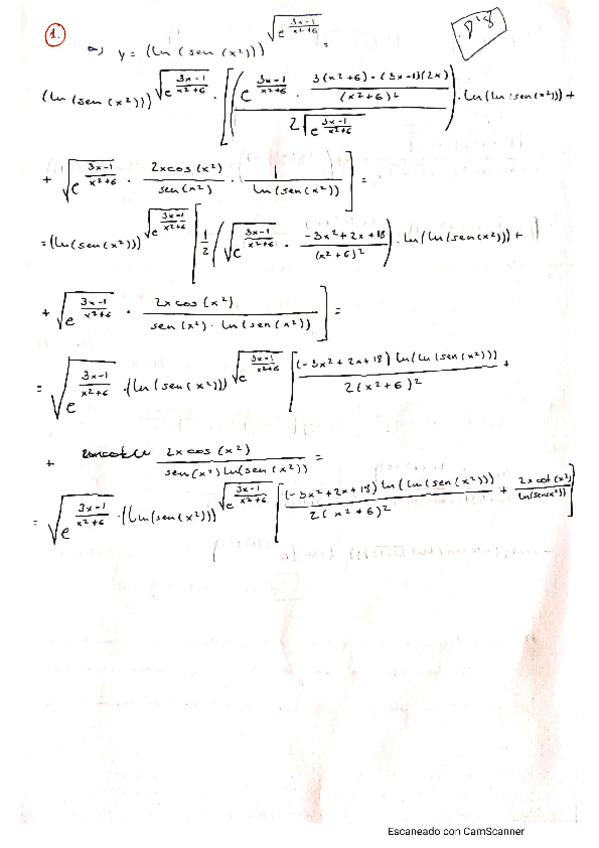 1.
y = (ln(sen(x²)))^√(e^((3x-1)/(x²+6))) =
(ln(sen(x²)))^√(e^((3x-1)/(x²+6))) · [((e^((3x-1)/(x²+6)) · (3(x²+6) - (3x-1)(2x))/(x²+6)²)/(2√(e^((3x-1)/(x²+6))))) · ln(ln(sen(x²))) +
+ √(e^((3x-1)/(x²+6))) · (2xcos(x²))/(sen(x²)) · (1/(ln(sen(x²))))] =
= (ln(sen(x²)))^√(e^((3x-1)/(x²+6))) [1/2 (√(e^((3x-1)/(x²+6))) · (-3x²+2x+18)/(x²+6)²) · ln(ln(sen(x²))) +
+ √(e^((3x-1)/(x²+6))) · (2xcos(x²))/(sen(x²) · ln(sen(x²)))] =
= √(e^((3x-1)/(x²+6))) · (ln(sen(x²)))^√(e^((3x-1)/(x²+6))) [((-3x²+2x+18) ln(ln(sen(x²))))/(2(x²+6)²) +
+ (2xcos(x²))/(sen(x²) ln(sen(x²))) =
= √(e^((3x-1)/(x²+6))) · (ln(sen(x²)))^√(e^((3x-1)/(x²+6))) [((-3x²+2x+18) ln(ln(sen(x²))))/(2(x²+6)²) + (2x cot(x²))/(ln(sen(x²)))]
Escaneado con CamScanner